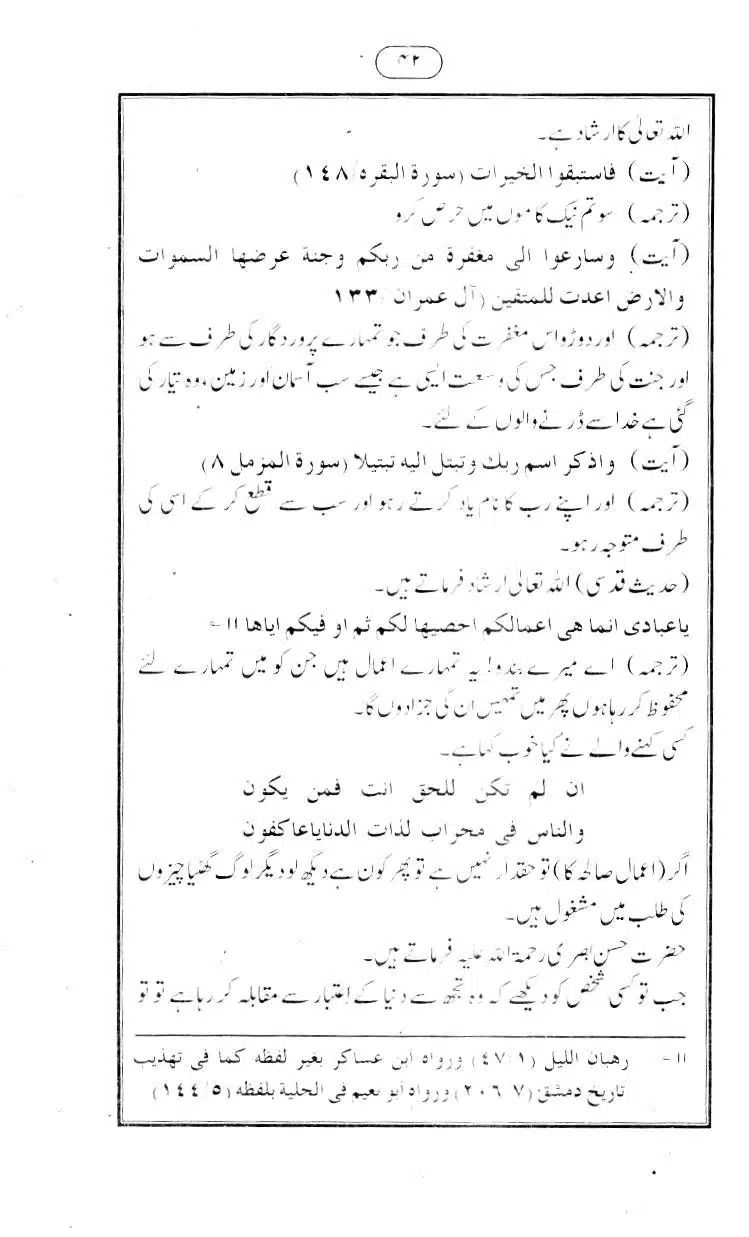 ۴۲
اللہ تعالیٰ کا ارشاد ہے۔
(آیت) فاستبقوا الخيرات (سورة البقره/١٤٨)
(ترجمہ) سو تم نیک کاموں میں حرص کرو
(آیت) وسارعوا الى مغفرة من ربكم وجنة عرضها السموات
والارض اعدت للمتقين (آل عمران /١٣٣
(ترجمہ) اور دوڑو اس مغفرت کی طرف جو تمہارے پروردگار کی طرف سے ہو
اور جنت کی طرف جس کی وسعت ایسی ہے جیسے سب آسمان اور زمین، وہ تیار کی
گئی ہے خدا سے ڈرنے والوں کے لئے۔
(آیت) واذكر اسم ربك وتبتل اليه تبتيلا (سورة المزمل ٨)
(ترجمہ) اور اپنے رب کا نام یاد کرتے رہو اور سب سے قطع کر کے اسی کی
طرف متوجہ رہو۔
(حدیث قدسی) اللہ تعالیٰ ارشاد فرماتے ہیں۔
ياعبادى انما هى اعمالكم احصيها لكم ثم او فيكم اياها ١١ـ
(ترجمہ) اے میرے بندو! یہ تمہارے اعمال ہیں جن کو میں تمہارے لئے
محفوظ کر رہا ہوں پھر میں تمہیں ان کی جزا دوں گا۔
کسی کہنے والے نے کیا خوب کہا ہے۔
ان لم تكن للحق انت فمن يكون
والناس فى محراب لذات الدنايا عاكفون
اگر (اعمال صالحہ کا) تو حقدار نہیں ہے تو پھر کون ہے دیکھ لو دیگر لوگ گھٹیا چیزوں
کی طلب میں مشغول ہیں۔
حضرت حسن بصری رحمۃ اللہ علیہ فرماتے ہیں۔
جب تو کسی شخص کو دیکھے کہ وہ تجھ سے دنیا کے اعتبار سے مقابلہ کر رہا ہے تو تو
١١- رهبان الليل (٤٧/١) ورواه ابن عساكر بغير لفظه كما فى تهذيب
تاريخ دمشق (٧ ٢٠٦) ورواه أبو نعيم فى الحلية بلفظه (١٤٤/٥)